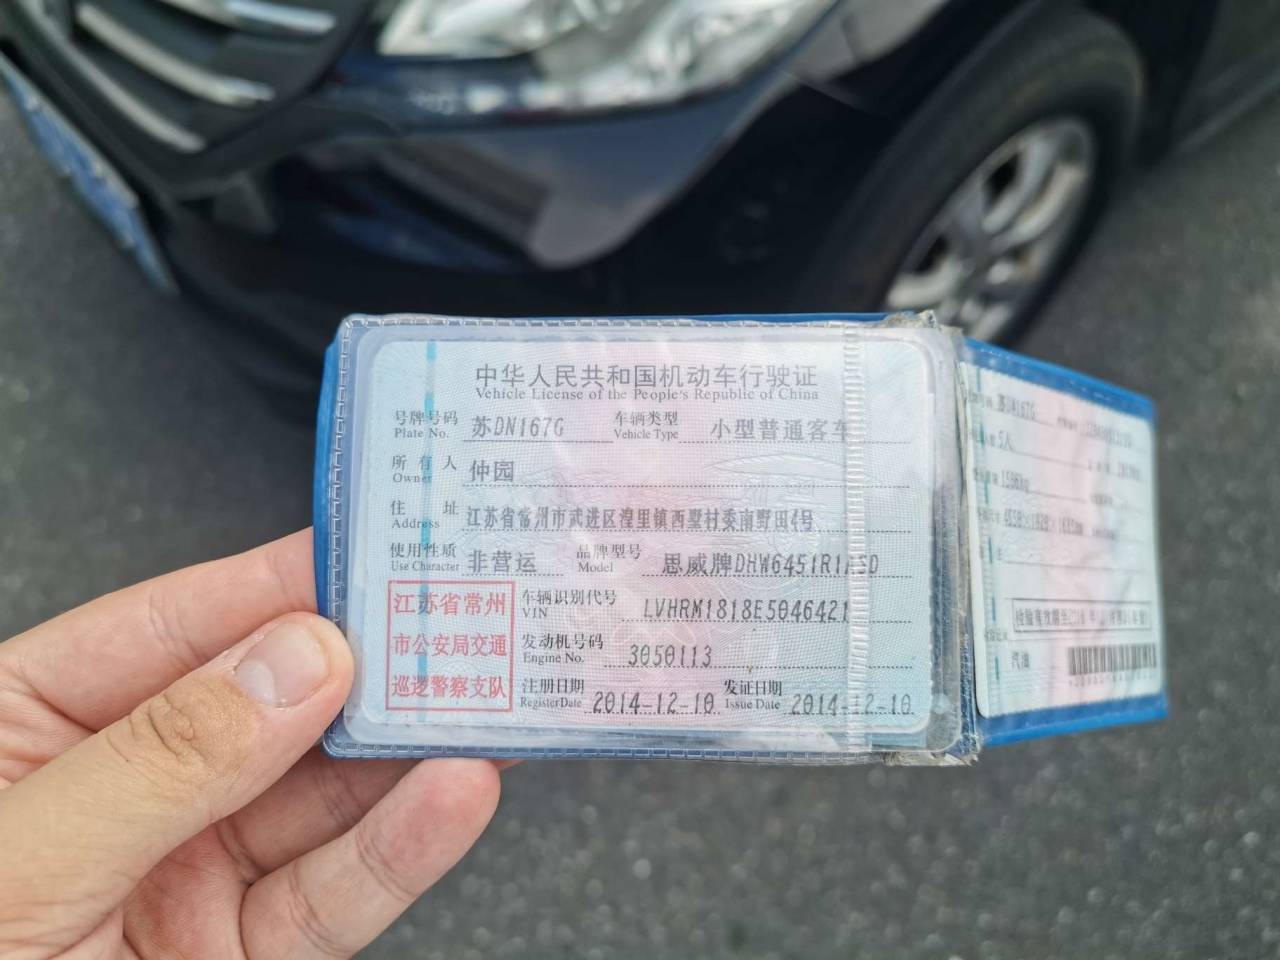 中华人民共和国机动车行驶证
Vehicle License of the People's Republic of China
号牌号码 苏DN167G 车辆类型 小型普通客车
Plate No. Vehicle Type
所有人 仲园
Owner
住址 江苏省常州市武进区湟里镇西墅村委南野田4号
Address
使用性质 非营运 品牌型号 思威牌DHW6451R1ASD
Use Character Model
江苏省常州
市公安局交通
巡逻警察支队
车辆识别代号 LVHRM1818E5046421
VIN
发动机号码 3050113
Engine No.
注册日期 2014-12-10 发证日期 2014-12-10
Register Date Issue Date
苏DN167G
5人
汽油